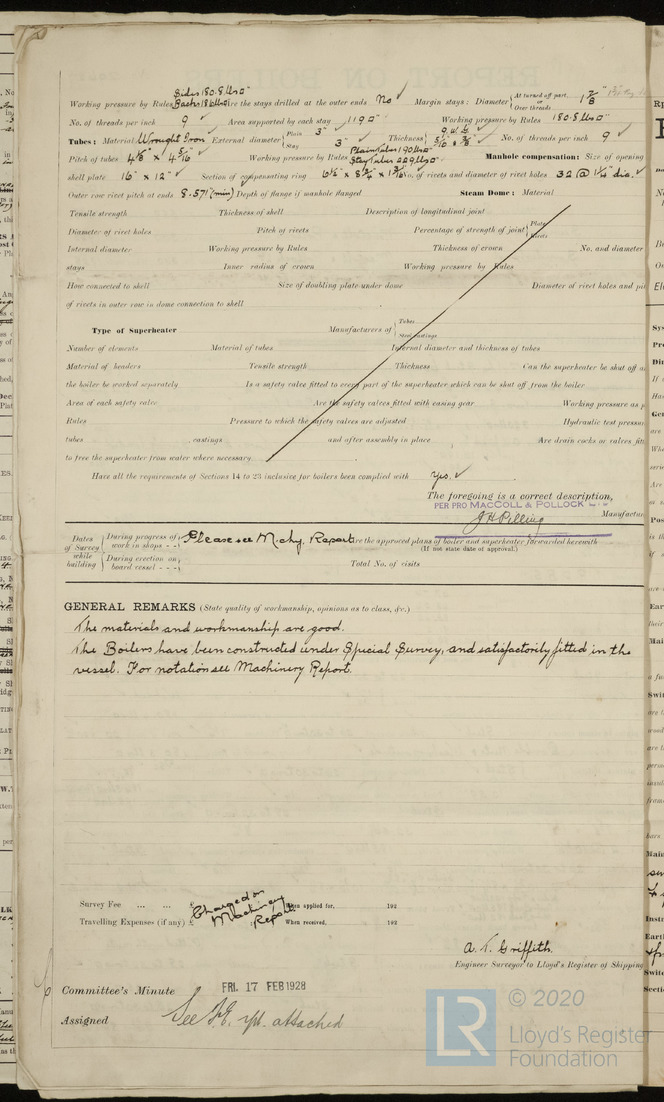 Sides 180.8 lbs□"
Working pressure by Rules Backs 186 lbs□" Are the stays drilled at the outer ends No ✓ Margin stays: Diameter { At turned off part, or Over threads 1 7/8
No. of threads per inch 9 ✓ Area supported by each stay 119 □" ✓ Working pressure by Rules 180.8 lbs □" ✓
Tubes: Material Wrought Iron ✓ External diameter { Plain 3" ✓ Stay 3" ✓ Thickness { 9 W.G. ✓ 5/16 & 3/8 ✓ No. of threads per inch 9 ✓
Pitch of tubes 4 1/8" x 4 5/16" ✓ Working pressure by Rules Plain tubes 190 lbs□" Stay tubes 229 lbs□" ✓ Manhole compensation: Size of opening
shell plate 16" x 12" ✓ Section of compensating ring No. of rivets and diameter of rivet holes 32 @ 1 1/4" dia. ✓
Outer row rivet pitch at ends 8.571" (min) Depth of flange if manhole flanged Steam Dome: Material
Tensile strength Thickness of shell Description of longitudinal joint
Diameter of rivet holes Pitch of rivets Percentage of strength of joint { Plate Rivets
Internal diameter Working pressure by Rules Thickness of crown No. and diameter
stays Inner radius of crown Working pressure by Rules
How connected to shell Size of doubling plate under dome Diameter of rivet holes and pi
of rivets in outer row in dome connection to shell
Type of Superheater Manufacturers of { Tubes Steel castings
Number of elements Material of tubes Internal diameter and thickness of tubes
Material of headers Tensile strength Thickness Can the superheater be shut off a
the boiler be worked separately Is a safety valve fitted to every part of the superheater which can be shut off from the boiler
Area of each safety valve Are the safety valves fitted with easing gear Working pressure as p
Rules Pressure to which the safety valves are adjusted Hydraulic test pressu
tubes , castings and after assembly in place Are drain cocks or valves fit
to free the superheater from water where necessary
Have all the requirements of Sections 14 to 23 inclusive for boilers been complied with Yes. ✓
The foregoing is a correct description,
PER PRO MACCOLL & POLLOCK LTD
J H Pelling Manufactur
Dates of Survey while building { During progress of work in shops - - } Please see Mchy. Report. Are the approved plans of boiler and superheater forwarded herewith
(If not state date of approval.)
{ During erection on board vessel - - - } Total No. of visits
GENERAL REMARKS (State quality of workmanship, opinions as to class, &c.)
The materials and workmanship are good.
The Boilers have been constructed under Special Survey, and satisfactorily fitted in the
vessel. For notation see Machinery Report.
Survey Fee ... ... £ Charged on When applied for, 192
Travelling Expenses (if any) £ Machinery Report When received, 192
A. T. Griffith.
Engineer Surveyor to Lloyd's Register of Shipping
Committee's Minute FRI. 17 FEB 1928
Assigned See F.E. rpt. attached
LR © 2020
Lloyd's Register
Foundation